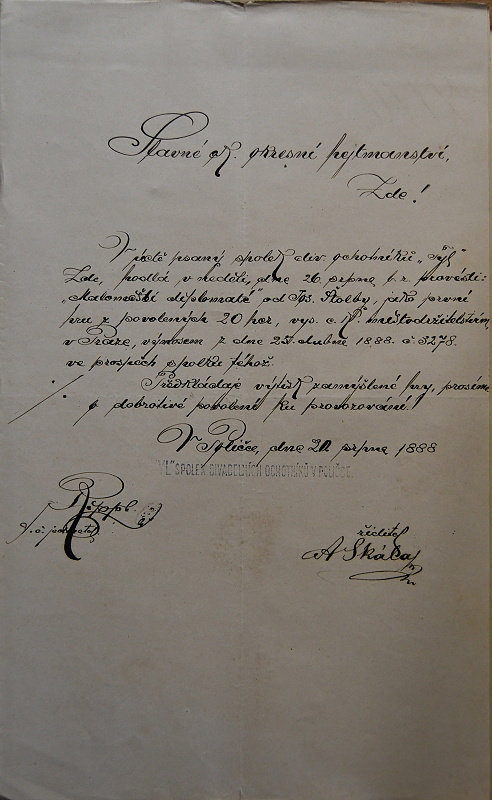 Slavné ck. okresní hejtmanství,
Zde!
V úctě psaný spolek div. ochotníků „Tyl“
Zde, hodlá v neděli, dne 26. srpna b.r. provésti:
„Maloměstští diplomaté“ od Jos. Štolby, jako první
hru z povolených 20 her, vys. c. k. místodržitelstvím,
v Praze, výnosem z dne 25. dubna 1888. č. 3278.
ve prospěch spolku téhož.
Předkládaje výtisk zamýšlené hry, prosíme
o dobrotivé povolení ku provozování.
V Poličce, dne 21. srpna 1888
"TYL" SPOLEK DIVADELNÍCH OCHOTNÍKŮ V POLIČCE
t. č. jednatel.
ředitel
A Skála